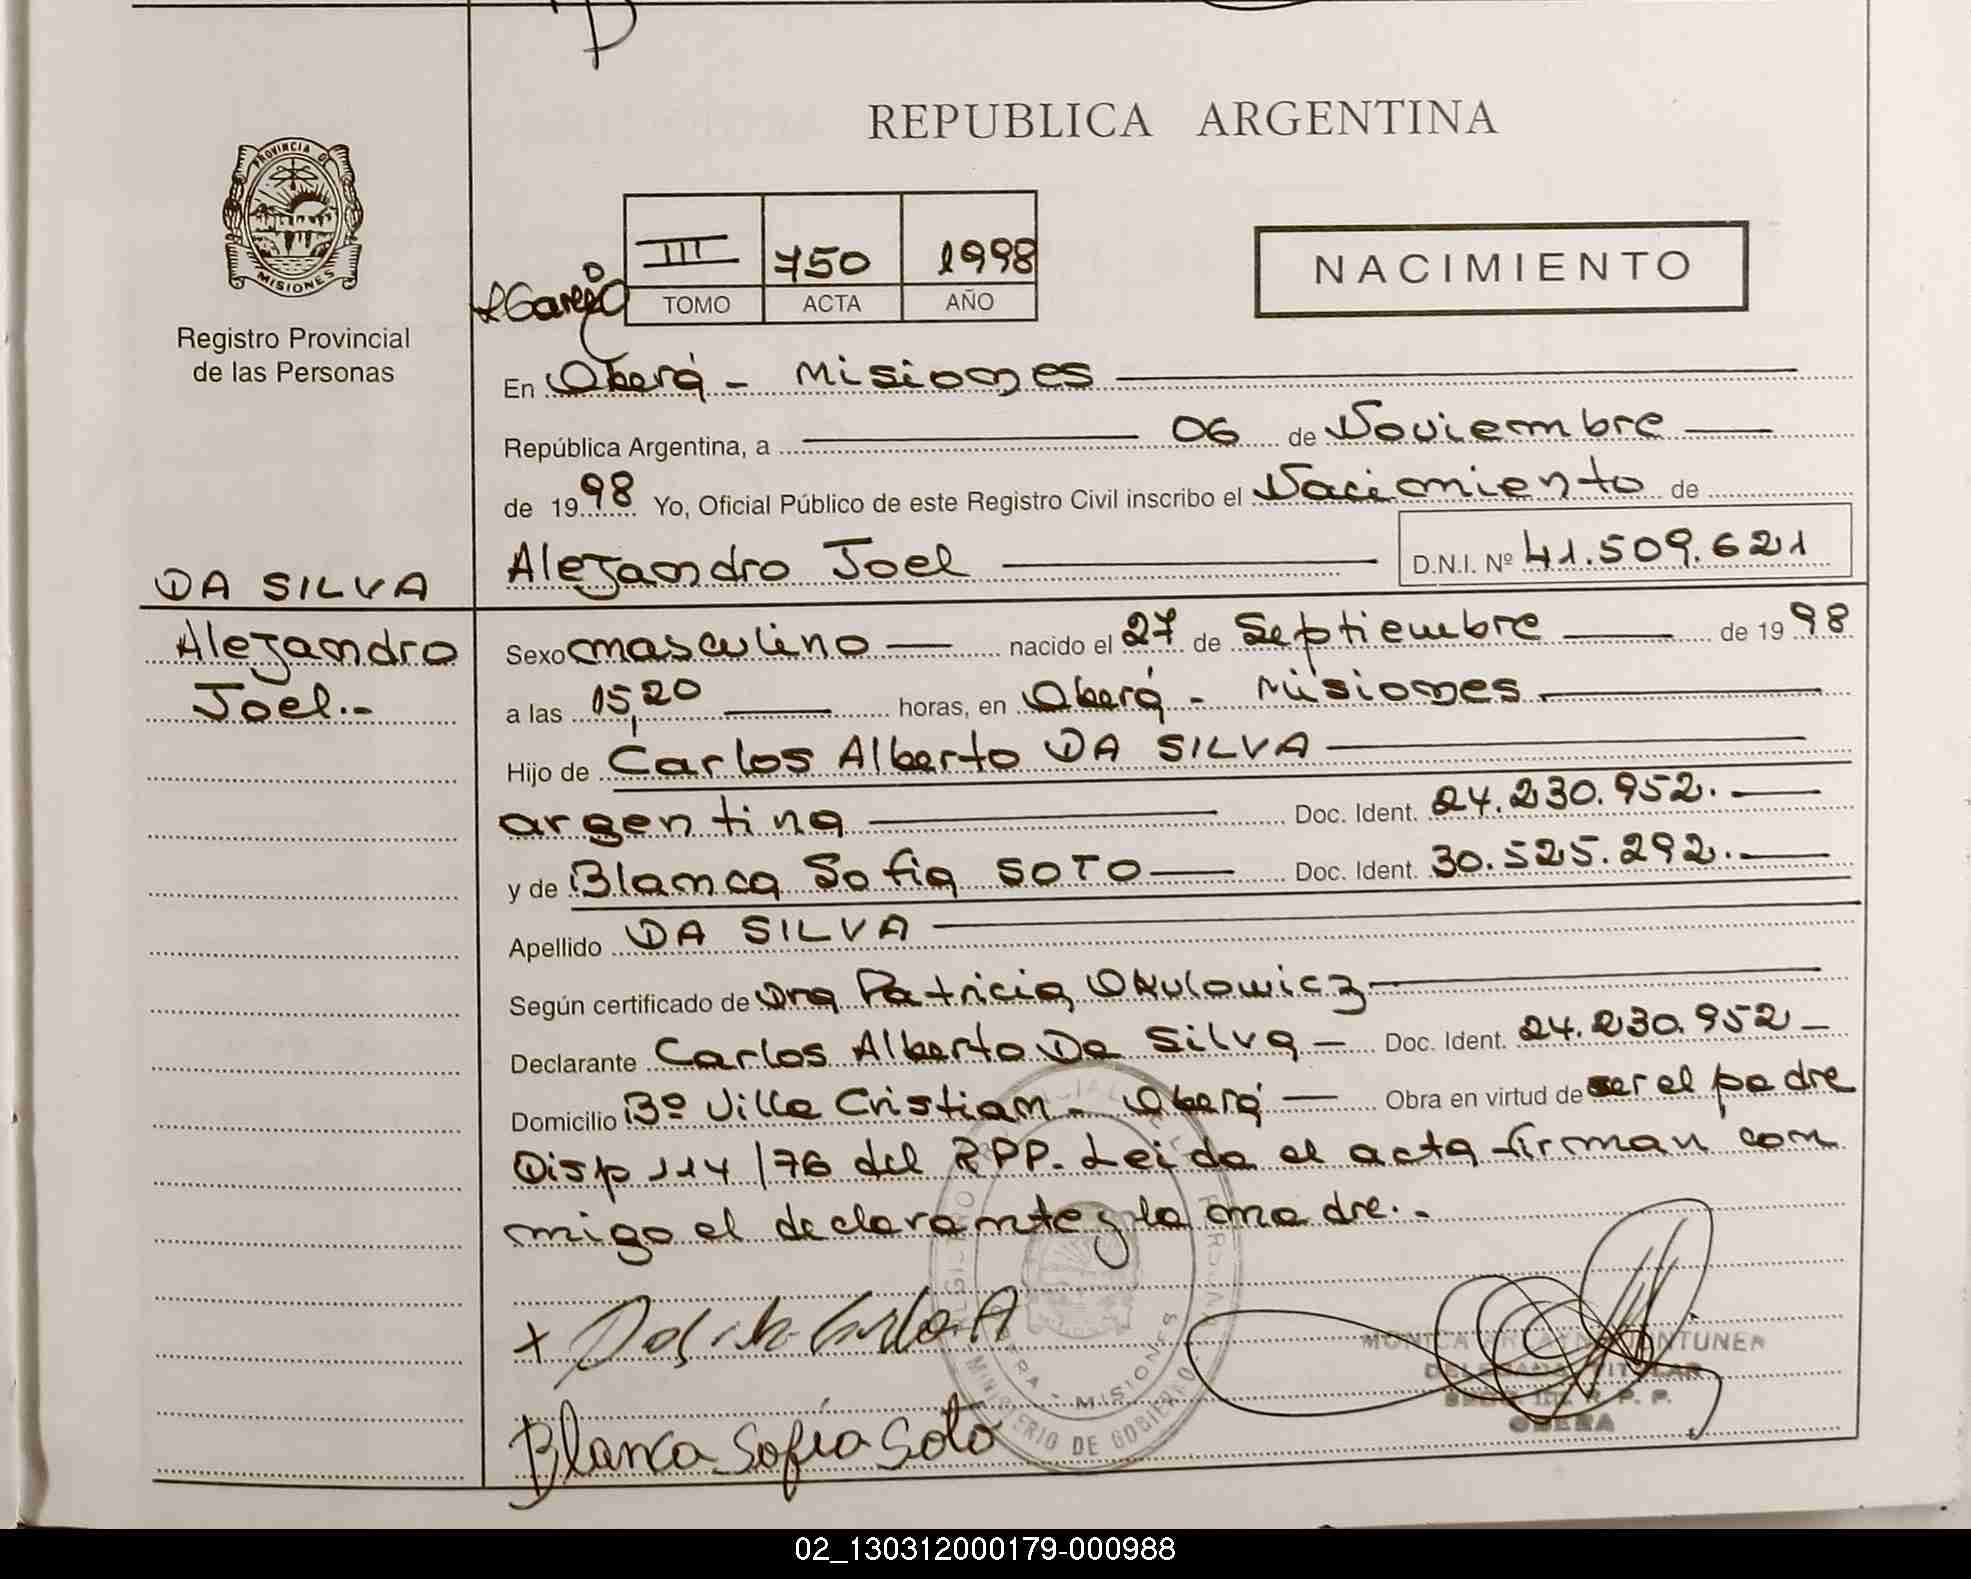 REPUBLICA ARGENTINA
PROVINCIA DE
MISIONES
Registro Provincial
de las Personas
III 750 1998
TOMO ACTA AÑO
NACIMIENTO
En Oberá - Misiones
República Argentina, a 06 de Noviembre
de 1998 Yo, Oficial Público de este Registro Civil inscribo el Nacimiento de
Alejandro Joel D.N.I. Nº 41.509.621
DA SILVA
Alejandro
Joel.-
Sexo masculino nacido el 27 de Septiembre de 1998
a las 15,20 horas, en Oberá - Misiones
Hijo de Carlos Alberto DA SILVA
argentina Doc. Ident. 24.230.952.
y de Blanca Sofia SOTO Doc. Ident. 30.525.292.
Apellido DA SILVA
Según certificado de Dra Patricia Okulowicz
Declarante Carlos Alberto Da Silva Doc. Ident. 24.230.952
Domicilio Bº Villa Cristian - Oberá Obra en virtud de ser el padre
Disp 114/76 del RPP. Leida el acta firman con
migo el declarante y la madre.-
x Da Silva Carlos A
Blanca Sofía Soto
MISIONES
MINISTERIO DE GOBIERNO
OBERA
02_130312000179-000988